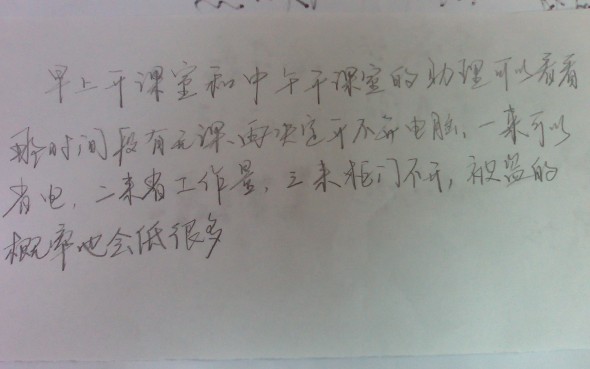 早上开课室和中午开课室的助理可以看看
那时间段有无课、再决定开不开电脑,一来可以
省电,二来省工作量,三来柜门不开,被盗的
概率也会低很多